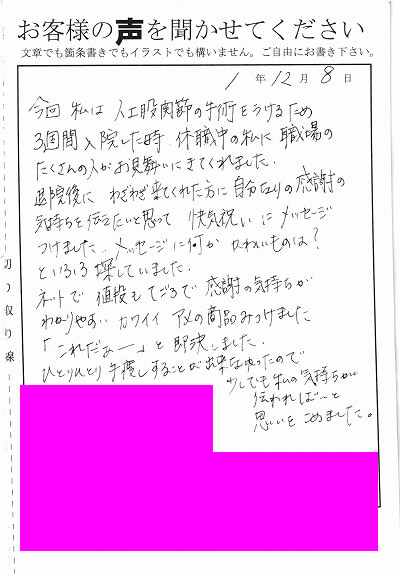 お客様の声を聞かせてください
文章でも箇条書きでもイラストでも構いません。ご自由にお書き下さい。
1年12月8日
今回 私は 人工股関節の手術をうけるため
3週間入院した時 休職中の私に 職場の
たくさんの人がお見舞いにきてくれました。
退院後に わざわざ来てくれた方に 自分なりの感謝の
気持ちを伝えたいと思って 快気祝いにメッセージ
つけました。メッセージに何か かわいいものは?
といろいろ探していました。
ネットで 値段もてごろで 感謝の気持ちが
わかりやすい カワイイ アメの商品みつけました
「これだぁー」と即決しました。
ひとりひとり手渡しすることが出来なかったので
少しでも私の気持ちが
伝われば〜と
思いをこめました。
切り取り線